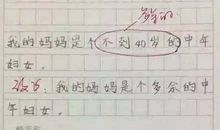 多余的
我的妈妈是个不到40岁的中
年妇女。
改为:我的妈妈是个多余的中
年妇女。